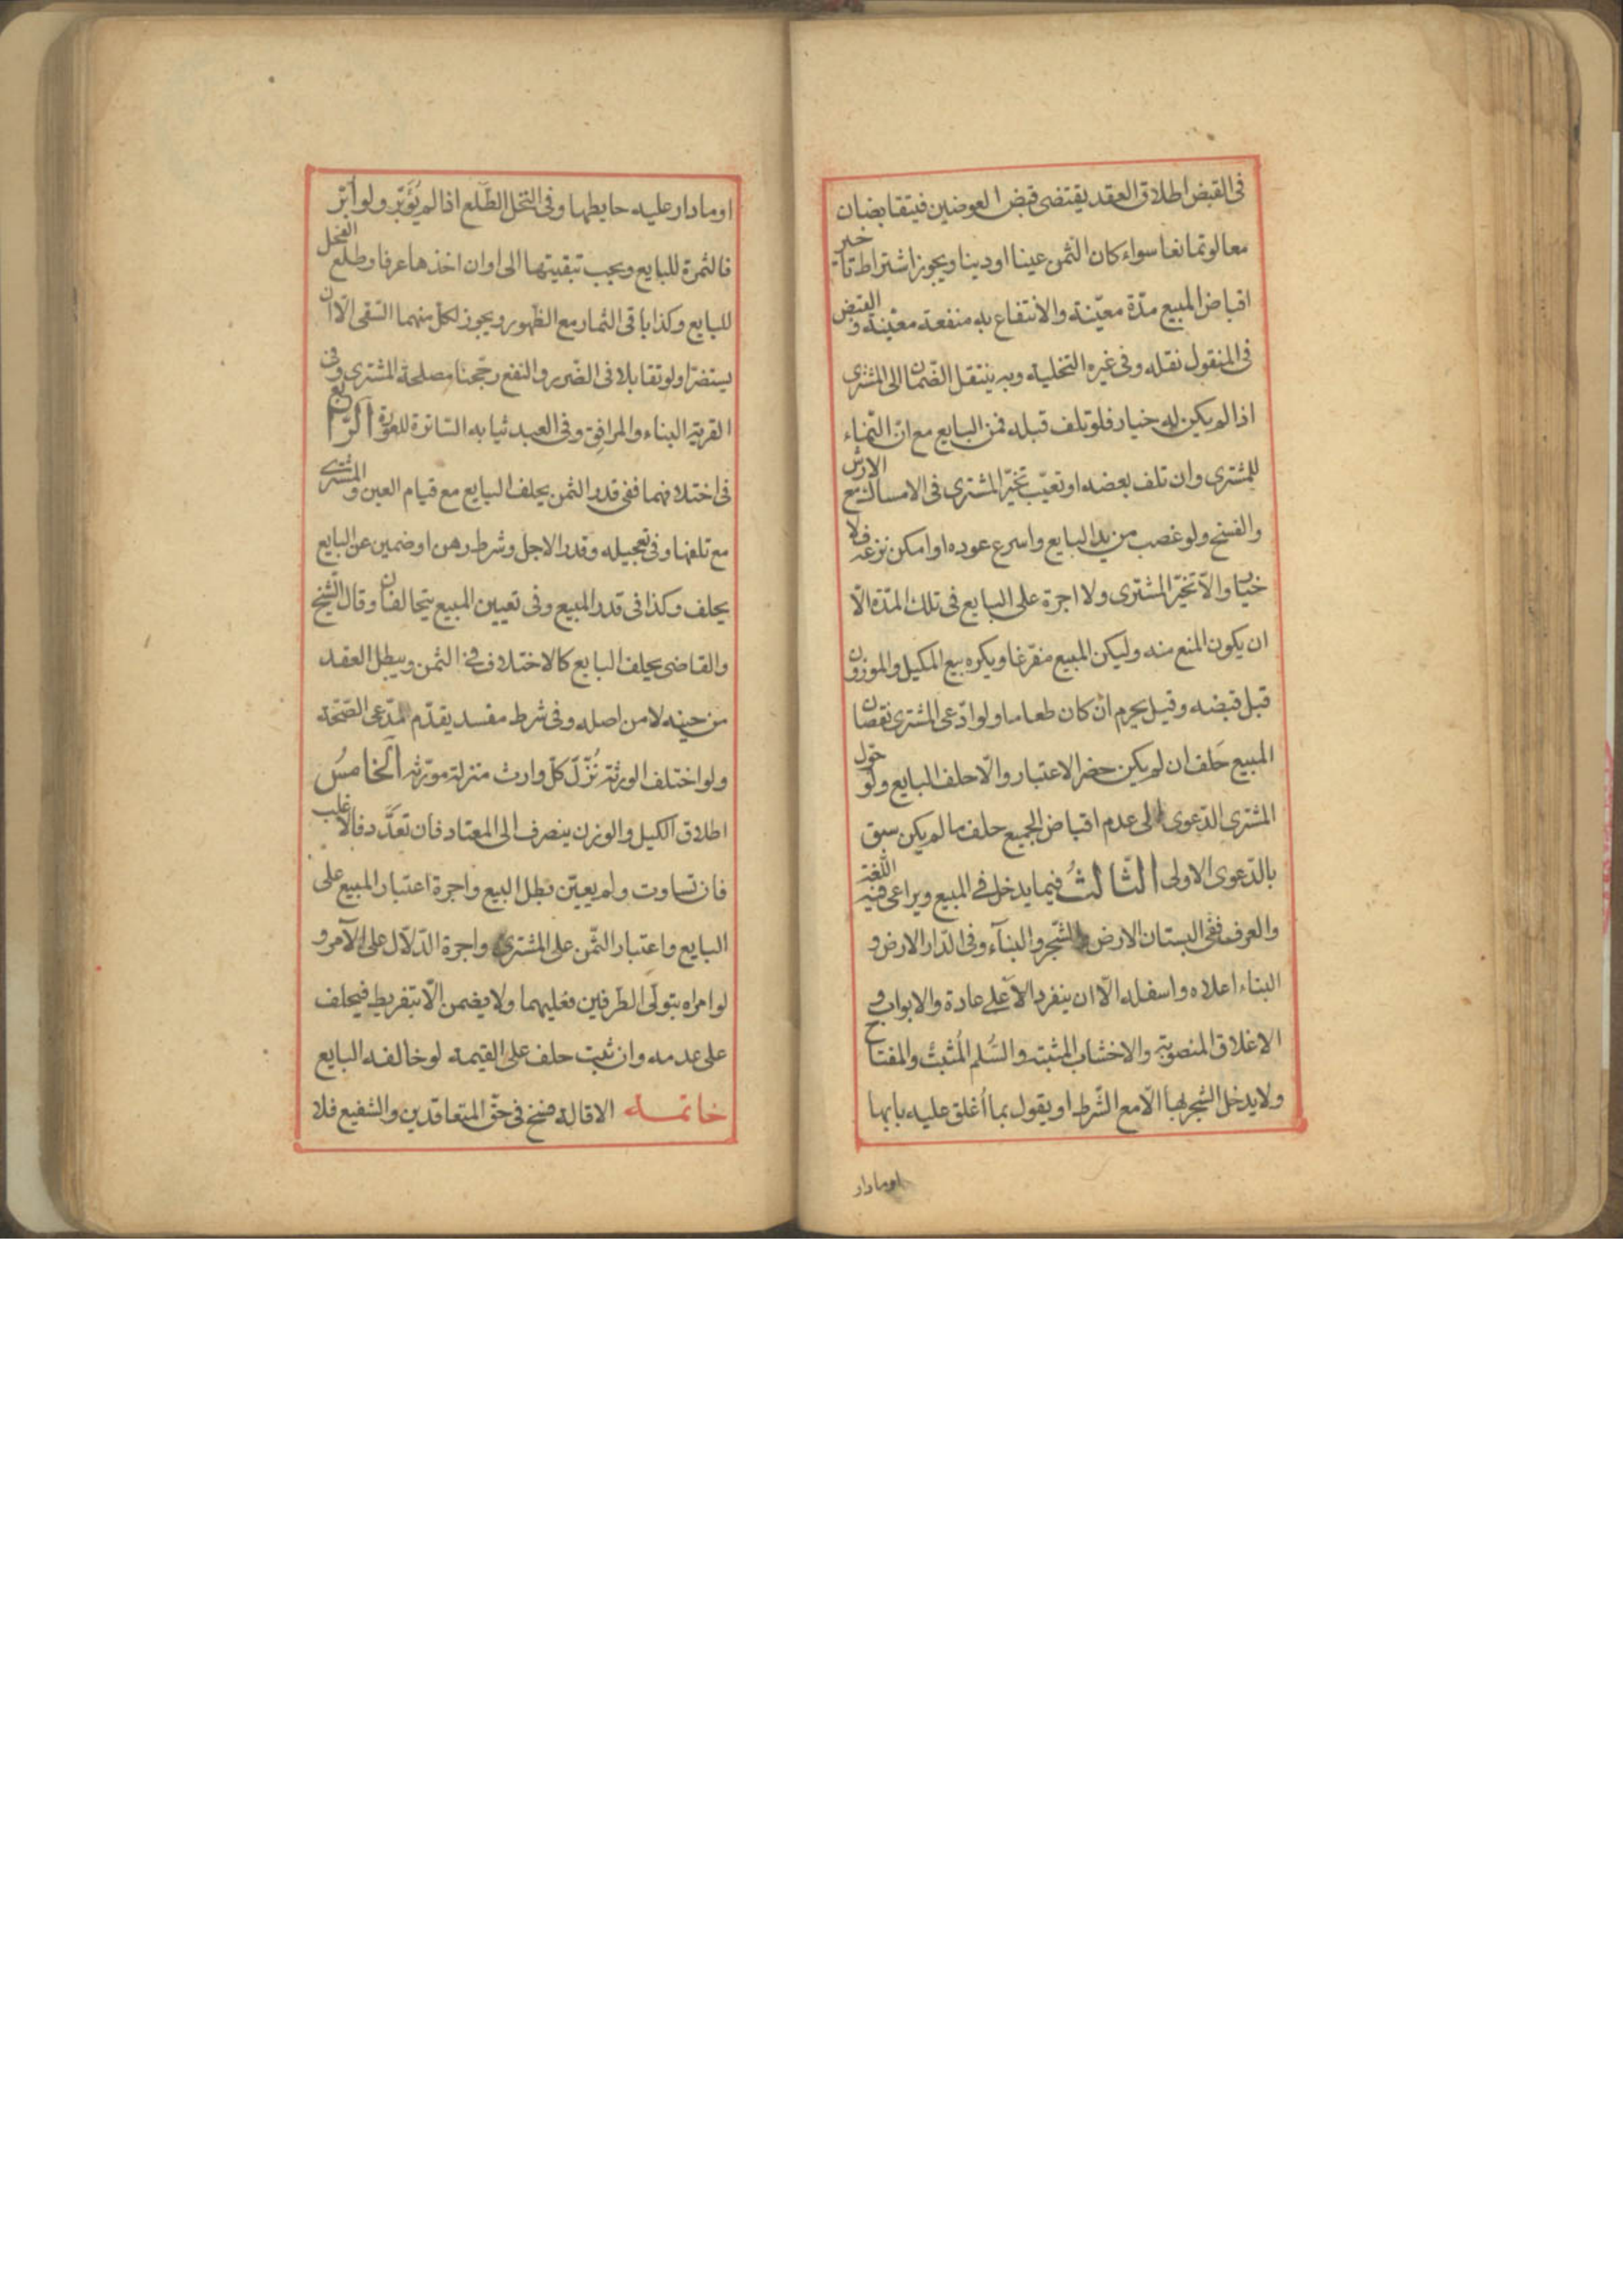 فى القبض اطلاق العقد يقتضى قبض العوضين فيتقابضان
معا لو تمانعا سواء كان الثمن عينا او دينا ويجوز اشتراط تاخير
اقباض المبيع مدّة معيّنة والانتفاع به منفعة معيّنة والقبض
فى المنقول نقله وفى غيره التخلية وبه ينتقل الضّمان الى المشترى
اذا لم يكن له خيار فلو تلف قبله فمن البايع مع انّ النماء
للمشترى وان تلف بعضه او تعيّب تخيّر المشترى فى الامساك مع الارش
والفسخ ولو غصب من يد البايع واسرع عوده او امكن نزعه فلا
خيار والّا تخيّر المشترى ولا اجرة على البايع فى تلك المدّة الّا
ان يكون المنع منه وليكن المبيع مفرّغا ويكره بيع المكيل والموزون
قبل قبضه وقيل يحرم ان كان طعاما ولو ادّعى المشترى نقصان
المبيع حلف ان لم يكن حضر الاعتبار والّا حلف البايع ولو حوّل
المشترى الدّعوى الى عدم اقباض الجميع حلف ما لم يكن سبق
بالدّعوى الاولى الثّالثُ فيما يدخل فى المبيع ويراعى فيه اللّغة
والعرف ففى البستان الارض والشّجر والبنآء وفى الدّار الارض و
البناء اعلاه واسفله الّا ان ينفرد الاعلى عادة والابواب و
الاغلاق المنصوبة والاخشاب المثبتة والسُّلم المُثبتُ والمفتاح
ولا يدخل الشجر بها الّا مع الشّرط او يقول بما اُغلق عليه بابها
او ما دار
او ما دار عليه حايطها وفى النّخل الطّلع اذا لم يُؤبّر ولو اُبّر
فالثمرة للبايع ويجب تبقيتها الى اوان اخذها عرفا وطلع الفحل
للبايع وكذا باقى الثمار مع الظّهور ويجوز لكلّ منهما السّقى الّا ان
يستضرّا ولو تقابلا فى الضّرر والنفع رجّحنا مصلحة المشترى وفى
القرية البناء والمرافق وفى العبد ثيابه السّاترة للعورة الرّابع
فى اختلافهما ففى قدر الثمن يحلف البايع مع قيام العين والمشترى
مع تلفها وفى تعجيله وقدر الاجل وشرط رهن او ضمين عن البايع
يحلف وكذا فى قدر المبيع وفى تعيين المبيع يتحالفان وقال الشّيخ
والقاضى يحلف البايع كالاختلاف فى الثمن ويبطل العقد
من حينه لا من اصله وفى شرط مفسد يقدّم مدّعى الصّحّة
ولو اختلف الورثة نُزّل كلّ وارث منزلة مورّثه الخامسُ
اطلاق الكيل والوزن ينصرف الى المعتاد فان تعدّد فالاغلب
فان تساوت ولم يعيّن بطل البيع واجرة اعتبار المبيع على
البايع واعتبار الثّمن على المشترى واجرة الدّلّال على الآمر و
لو امراه بتولّى الطّرفين فعليهما ولا يضمن الّا بتفريط فيحلف
على عدمه وان ثبت حلف على القيمة لو خالفه البايع
خاتمة الاقالة فسخ فى حقّ المتعاقدين والشفيع فلا